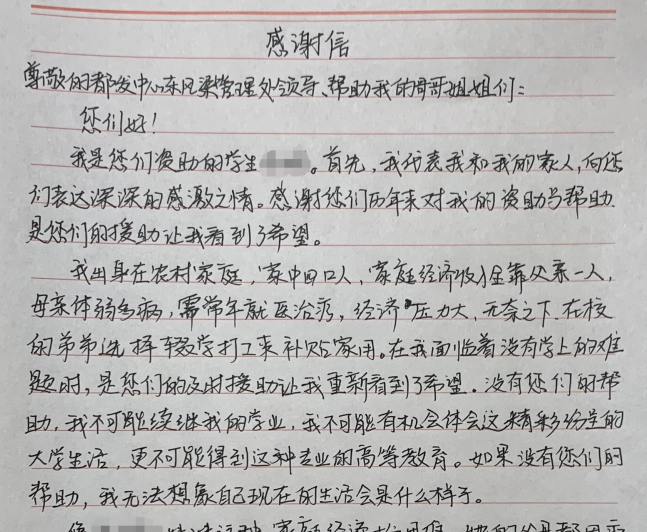 感谢信
尊敬的都发中心东风渠管理处领导、帮助我的哥哥姐姐们：
您们好！
我是您们资助的学生 。首先，我代表我和我的家人，向您
们表达深深的感激之情。感谢您们历年来对我的资助与帮助.
是您们的援助让我看到了希望。
我出身在农村家庭，家中四口人，家庭经济收入全靠父亲一人，
母亲体弱多病，需常年就医治疗，经济压力大，无奈之下.在校
的弟弟选择辍学打工来补贴家用。在我面临着没有学上的难
题时，是您们的及时援助让我重新看到了希望．没有您们的帮
助，我不可能继续我的学业，我不可能有机会体会这精彩纷呈的
大学生活，更不可能得到这种专业的高等教育。如果没有您们的
帮助，我无法想象自己现在的生活会是什么样子。